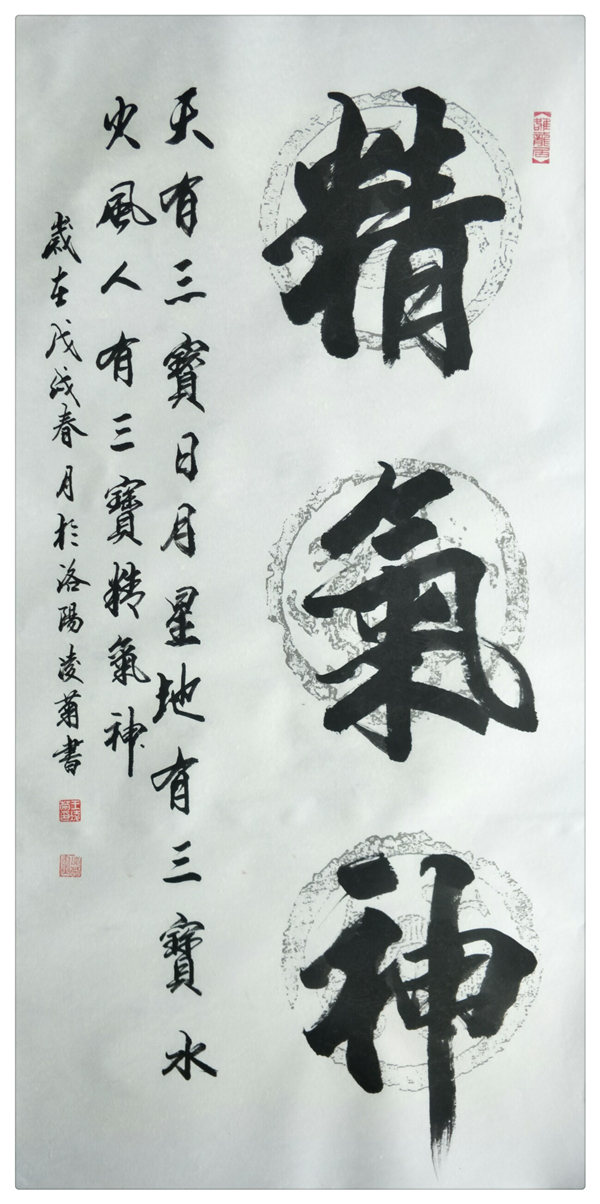 精氣神
天有三寶日月星地有三寶水
火風人有三寶精氣神
歲在戊戌春月於洛陽凌菊書